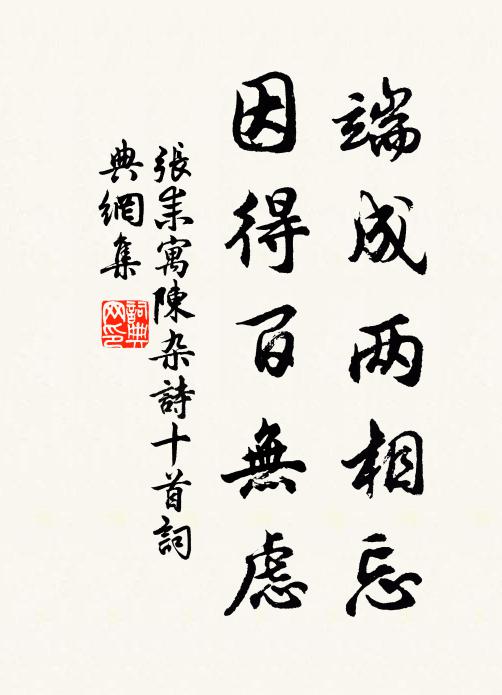 端成两相忘
因得百無虑
張耒寓陳杂詩十首詞
典網集
詞典网印